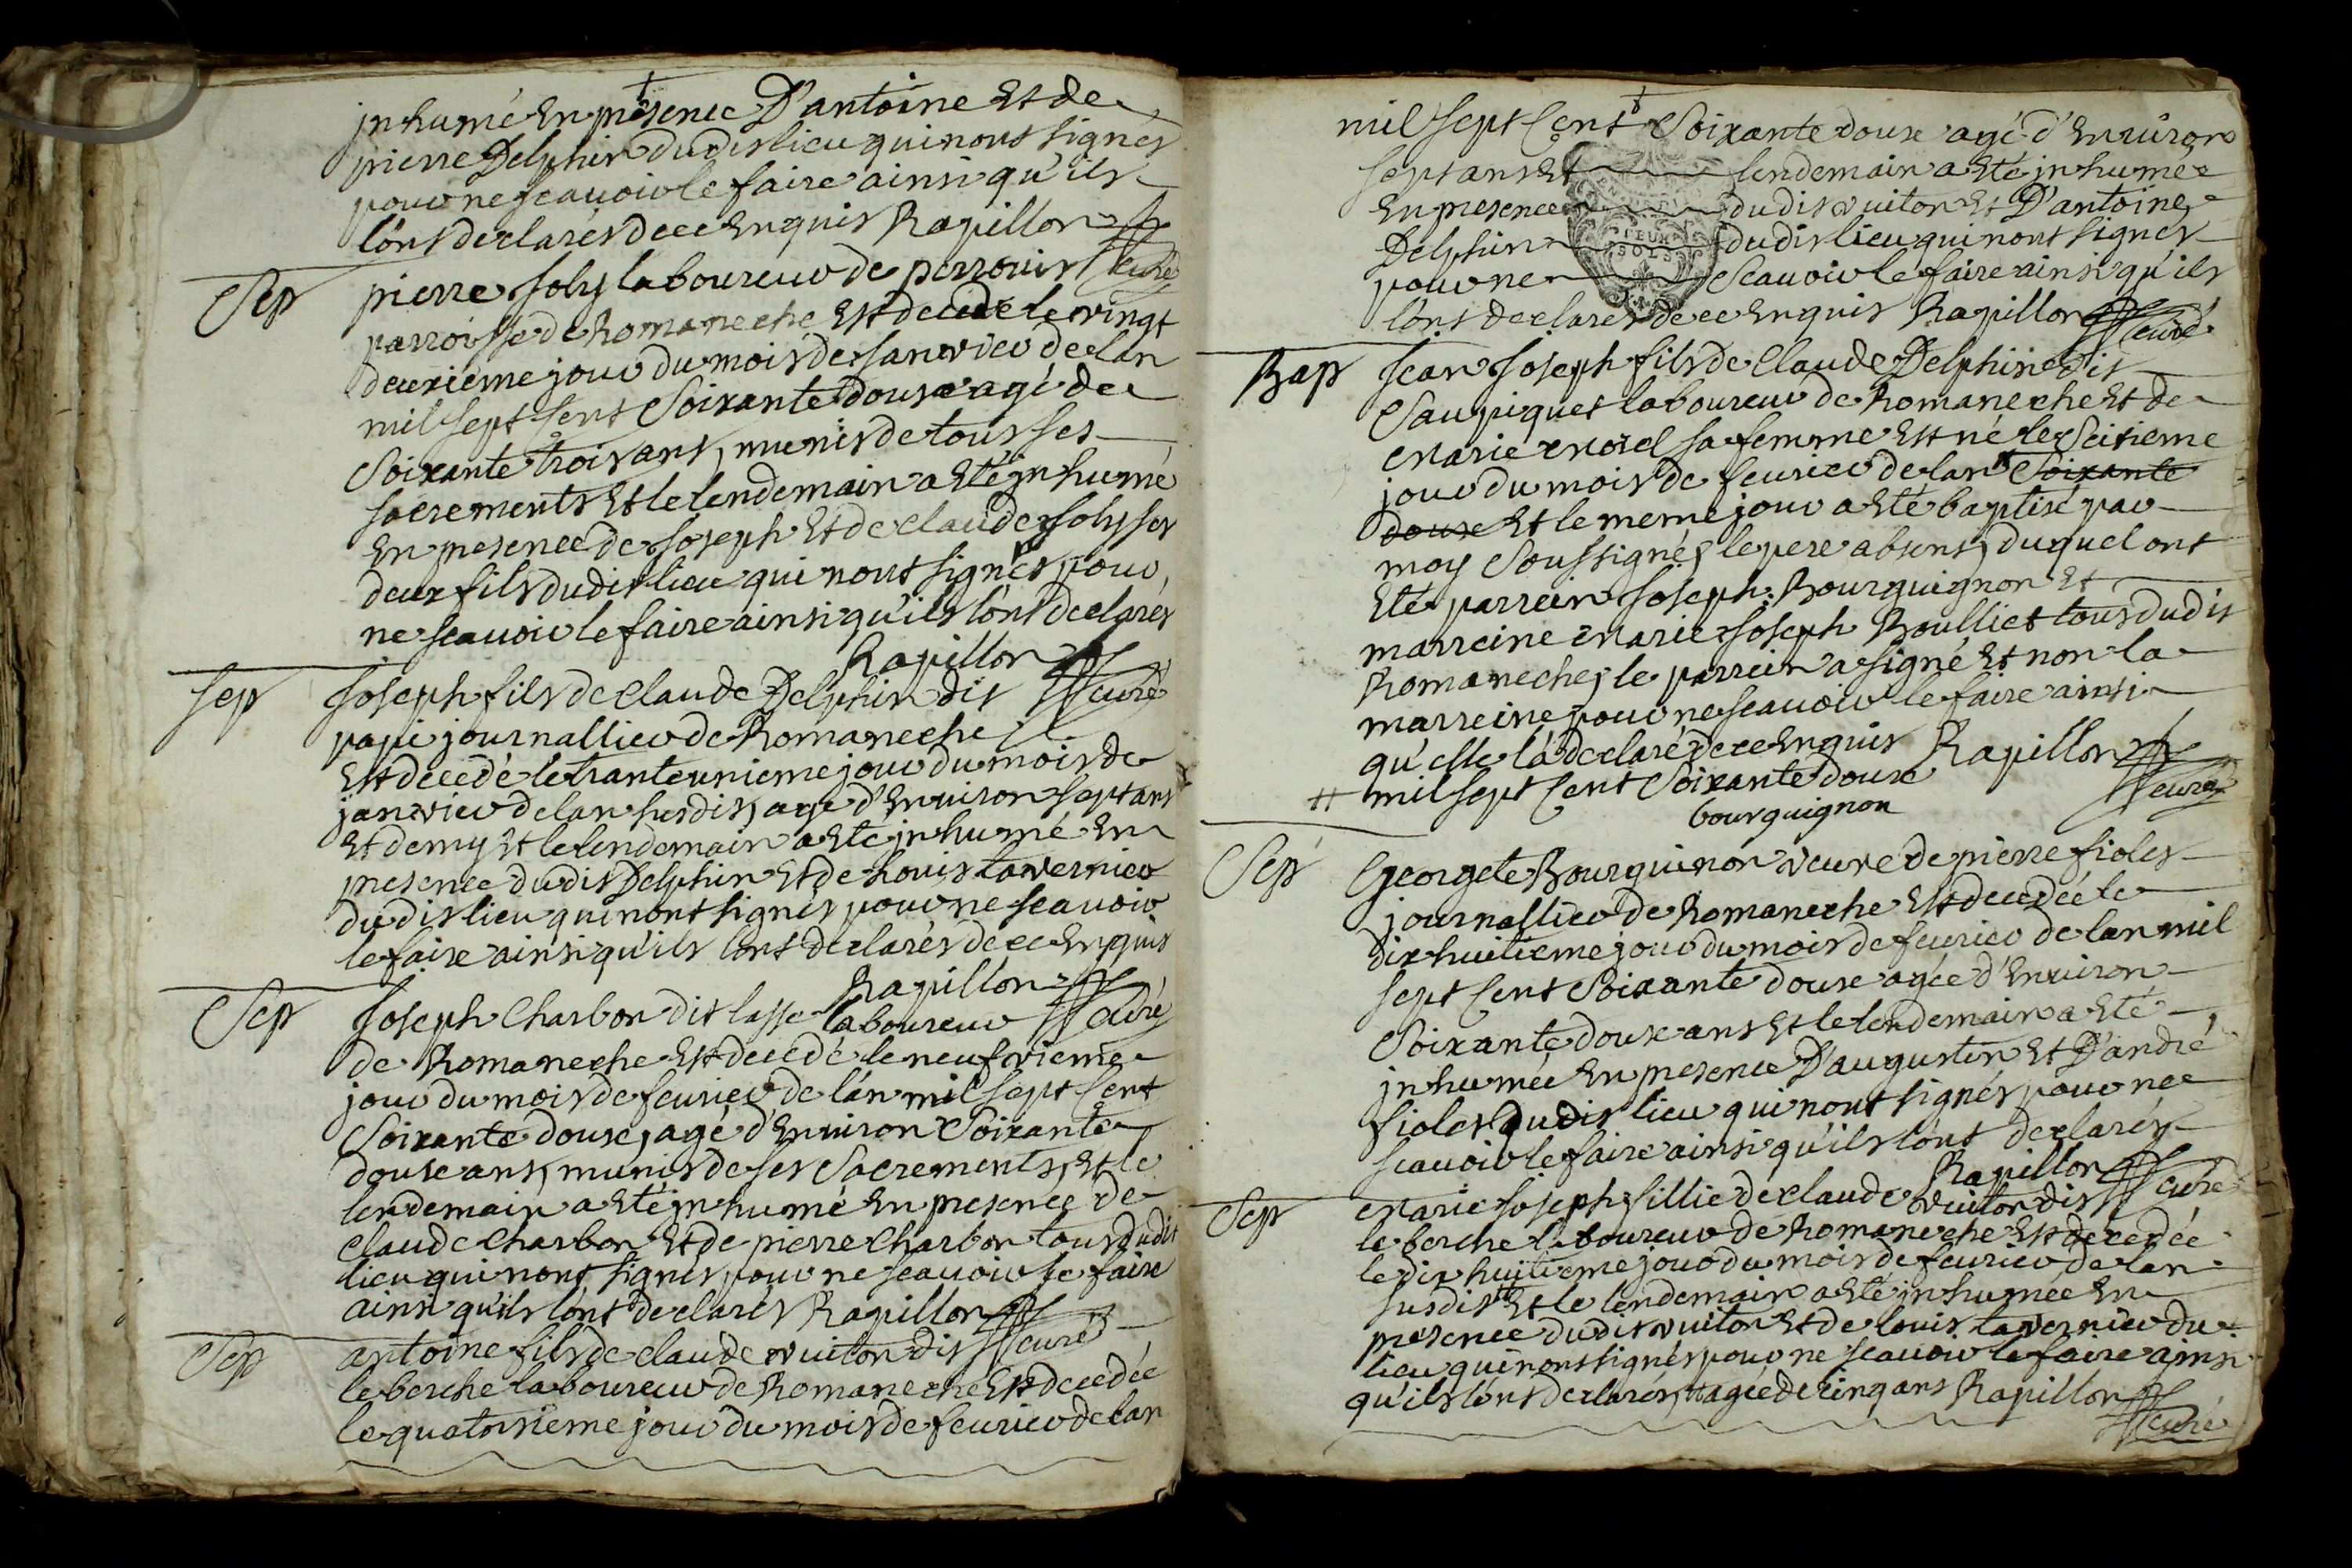 inhumé En présence D'antoine Et de
pierre Delphin dudit lieu qui nont signés
pour ne scauoir le faire ainsi qu'ils
lont declarés de ce Enquis Rapillon
curé
Sep
pierre Joly laboureur de perrouis
parroisse de Romaneche Est decedé le vingt
deuxieme jour du mois de Janvier de lan
mil sept Cent Soixante douse agé de
Soixante trois ans, munis de tous ses
sacrements Et le lendemain a Eté inhumé
En presence de Joseph Et de claude Joly ses
deux fils dudit lieu qui nont signés pour
ne scauoir le faire ainsi qu'ils lont declarés
Rapillon
curé
Sep
Joseph fils de Claude Delphin dit
papi journallier de Romaneche
Est decedé le tranteunieme jour du mois de
janvier de lan susdit, agé d'Enuiron sept ans
Et demy Et le lendemain a Eté inhumé En
presence dudit Delphin Et de Louis tavernier
dudit lieu qui nont signés pour ne scauoir
le faire ainsi qu'ils lont declarés de ce Enquis
Rapillon
curé
Sep
Joseph Charbon dit lasse laboureur
de Romaneche Est decedé le neufvieme
jour du mois de feurier de lan mil sept Cent
Soixante douse, agé d'Enuiron Soixante
douse ans, munis de ses Sacrements, Et le
lendemain a Eté inhumé En presence de
Claude Charbon Et de pierre Charbon tous dudit
lieu qui nont signés pour ne scauoir le faire
ainsi qu'ils lont declarés Rapillon
curé
Sep
antoine fils de claude vuiton dit
leberche laboureur de Romaneche Est decedée
le quatorsieme jour du mois de feurier de lan
mil sept Cent Soixante douse agé d'Enuiron
sept ans Et lendemain a Eté inhumée
En presence dudit vuiton Et D'antoine
Delphin dudit lieu qui nont signés
pour ne Scauoir le faire ainsi qu'ils
lont declarés de ce Enquis Rapillon
DEUX
SOLS
curé
Bap
Jean Joseph fils de Claude Delphin dit
Saupiquet laboureur de Romaneche Et de
Marie Morel sa femme Est né le Seisieme
jour du mois de feurier de lan Soixante
douse Et le meme jour a Eté baptisé par
moy Soussigné, le pere absent, duquel ont
Eté parrein Joseph Bourguignon Et
marreine Marie Joseph Boulliet tous dudit
Romaneche, le parrein a signé Et non la
marreine pour ne scauoir le faire ainsi
qu'elle la declaré de ce Enquis Rapillon
curé
# mil sept Cent Soixante douse
bourguignon
Sep
Georgete Bourguinon veuve de pierre fiolet
journallier de Romaneche Est decedée le
dix huitieme jour du mois de feurier de lan mil
sept Cent Soixante douse agée d'Enuiron
Soixante douse ans Et le lendemain a Eté
inhumée En presence D'augustin Et D'andré
fiolet dudit lieu qui nont signés pour ne
scauoir le faire ainsi qu'ils lont declarés
Rapillon
curé
Sep
Marie Joseph fillie de claude vuiton dit
leberche laboureur de Romaneche Est decedée
le dix huitieme jour du mois de feurier de lan
susdit Et le lendemain a Eté inhumée En
presence dudit vuiton Et de louis tavernier du
lieu qui nont signés pour ne scauoir le faire ainsi
qu'ils lont declarés, agée de cinq ans Rapillon
curé